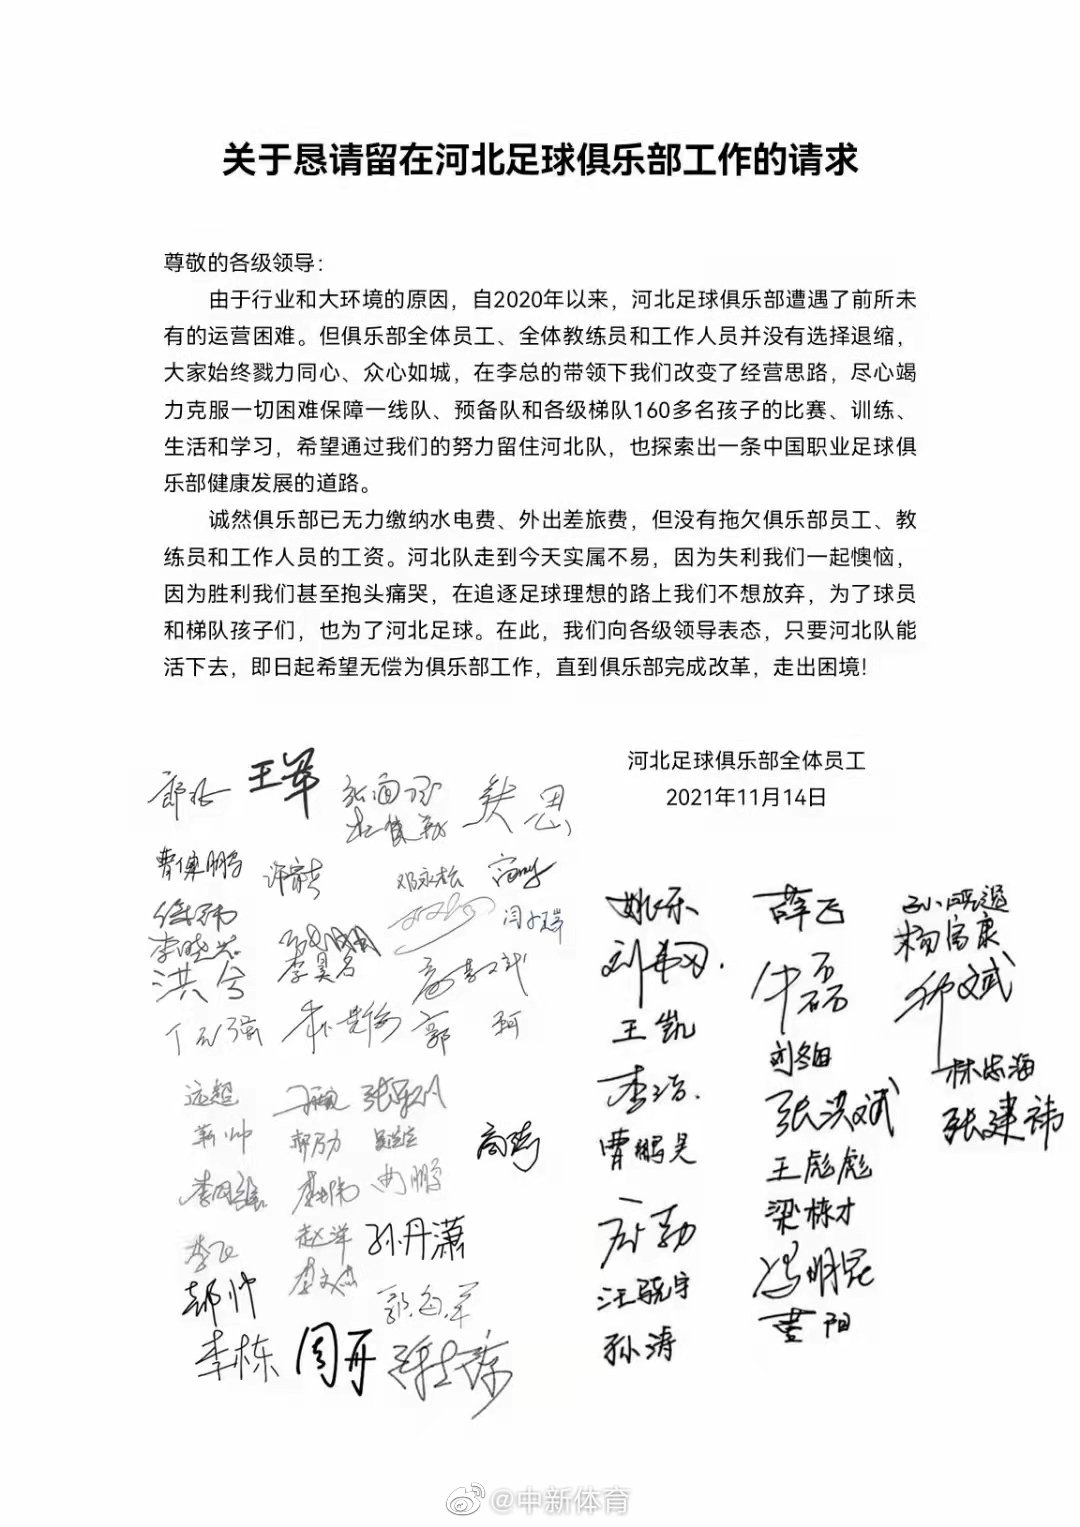 关于恳请留在河北足球俱乐部工作的请求
尊敬的各级领导：
由于行业和大环境的原因，自2020年以来，河北足球俱乐部遭遇了前所未
有的运营困难。但俱乐部全体员工、全体教练员和工作人员并没有选择退缩，
大家始终戮力同心、众心如城，在李总的带领下我们改变了经营思路，尽心竭
力克服一切困难保障一线队、预备队和各级梯队160多名孩子的比赛、训练、
生活和学习，希望通过我们的努力留住河北队，也探索出一条中国职业足球俱
乐部健康发展的道路。
诚然俱乐部已无力缴纳水电费、外出差旅费，但没有拖欠俱乐部员工、教
练员和工作人员的工资。河北队走到今天实属不易，因为失利我们一起懊恼，
因为胜利我们甚至抱头痛哭，在追逐足球理想的路上我们不想放弃，为了球员
和梯队孩子们，也为了河北足球。在此，我们向各级领导表态，只要河北队能
活下去，即日起希望无偿为俱乐部工作，直到俱乐部完成改革，走出困境！
河北足球俱乐部全体员工
2021年11月14日
王军
邓永松
李昊名
郭珂
远超
靳帅
曲鹏
李飞
赵洋
孙丹潇
李文杰
郝帅
李栋
周冉
姚乐
薛飞
杨富康
王凯
李浩
林忠海
张洪斌
张建祎
曹鹏昊
王彪彪
梁栋才
冯明昆
汪骁宇
董阳
孙涛
@中新体育